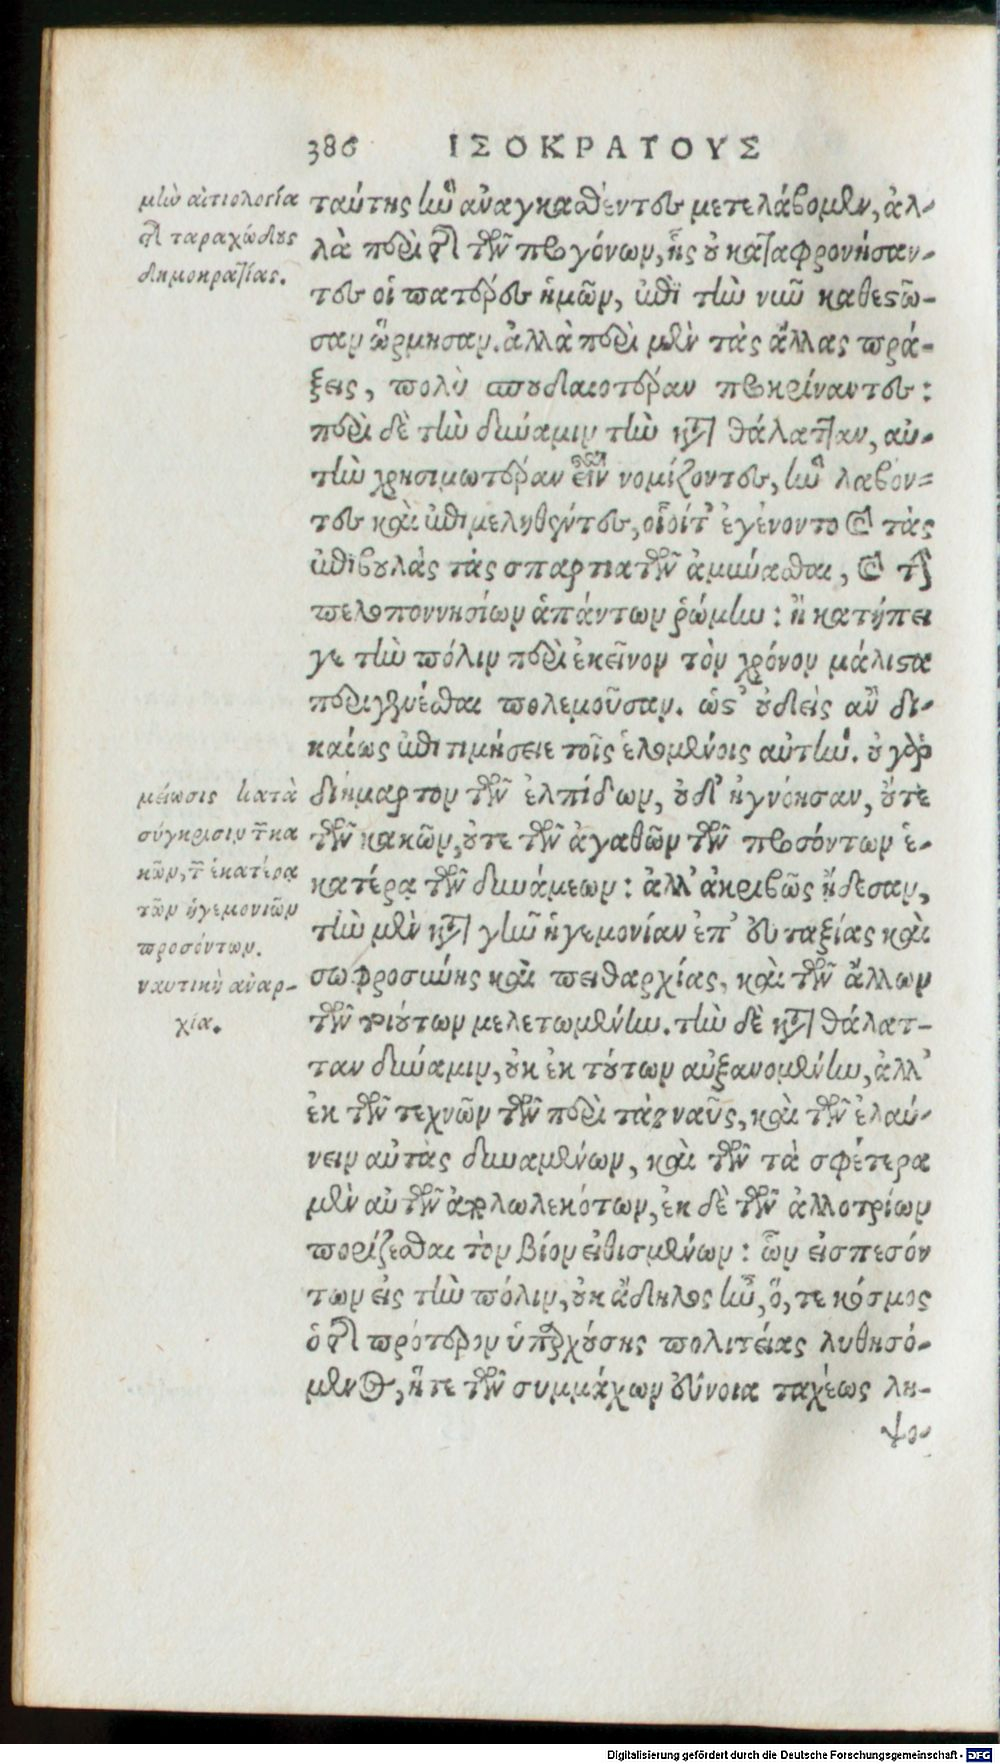 386 ΙΣΟΚΡΑΤΟΥΣ
μὴν αἰτιολογία
τῆς ταραχώδους
δημοκρατίας.
ταύτης ἣν ἀναγκασθέντες μετελάβομεν, ἀλ-
λὰ περὶ τῆς τῶν προγόνων, ἧς οὐ καταφρονήσαν-
τες οἱ πατέρες ἡμῶν, ἐπὶ τὴν νῦν καθεστῶ-
σαν ὥρμησαν. ἀλλὰ περὶ μὲν τὰς ἄλλας πρά-
ξεις, πολὺ σπουδαιοτέραν προκρίναντες:
περὶ δὲ τὴν δύναμιν τὴν κατὰ θάλατταν, αὐ-
τὴν χρησιμωτέραν εἶναι νομίζοντες, ἣν λαβόν-
τες καὶ ἐπιμεληθέντες, οἷοίτ' ἐγένοντο καὶ τὰς
ἐπιβουλὰς τὰς σπαρτιατῶν ἀμύνασθαι, καὶ τὴν
πελοποννησίων ἁπάντων ῥώμην: ἢ κατήπει
γε τὴν πόλιν περὶ ἐκεῖνον τὸν χρόνον μάλιστα
περιγενέσθαι πολεμοῦσαν. ὥστ' οὐδεὶς ἂν δι-
καίως ἐπιτιμήσειε τοῖς ἑλομένοις αὐτήν. οὐ γὰρ
μείωσις κατὰ
σύγκρισιν τῶν κα
κῶν, τῶν ἑκατέρᾳ
τῶν ἡγεμονιῶν
προσόντων.
ναυτικὴ ἀναρ-
χία.
διήμαρτον τῶν ἐλπίδων, οὐδ' ἠγνόησαν, οὔτε
τῶν κακῶν, οὔτε τῶν ἀγαθῶν τῶν προσόντων ἑ-
κατέρᾳ τῶν δυνάμεων: ἀλλ' ἀκριβῶς ᾔδεσαν,
τὴν μὲν κατὰ γῆν ἡγεμονίαν ἐπ' εὐταξίας καὶ
σωφροσύνης καὶ πειθαρχίας, καὶ τῶν ἄλλων
τῶν τοιούτων μελετωμένην. τὴν δὲ κατὰ θάλατ-
ταν δύναμιν, οὐκ ἐκ τούτων αὐξανομένην, ἀλλ'
ἐκ τῶν τεχνῶν τῶν περὶ τὰς ναῦς, καὶ τῶν ἐλαύ-
νειν αὐτὰς δυναμένων, καὶ τῶν τὰ σφέτερα
μὲν αὐτῶν ἀπολωλεκότων, ἐκ δὲ τῶν ἀλλοτρίων
πορίζεσθαι τὸν βίον εἰθισμένων: ὧν εἰσπεσόν
των εἰς τὴν πόλιν, οὐκ ἄδηλος ἦν, ὅ, τε κόσμος
ὁ τῆς πρότερον ὑπαρχούσης πολιτείας λυθησό-
μενος, ἥτε τῶν συμμάχων εὔνοια ταχέως λή-
ψο-
Digitalisierung gefördert durch die Deutsche Forschungsgemeinschaft - DFG